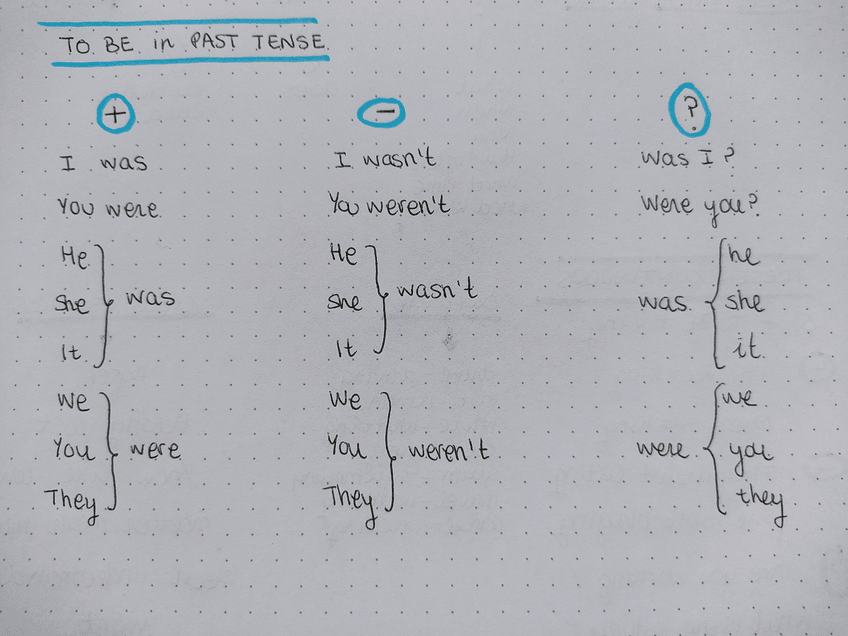 TO BE in PAST TENSE
+ - ?
I was I wasn't was I?
You were You weren't Were you?
He He he
She } was She } wasn't was { she
It It it
We We we
You } were You } weren't were { you
They They they